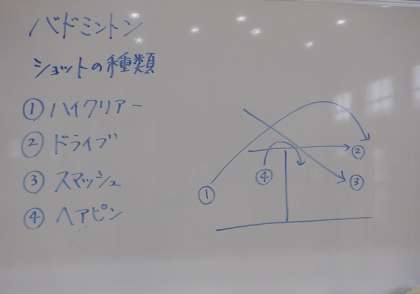 バドミントン
ショットの種類
①ハイクリアー
②ドライブ
③スマッシュ
④ヘアピン
①
②
③
④